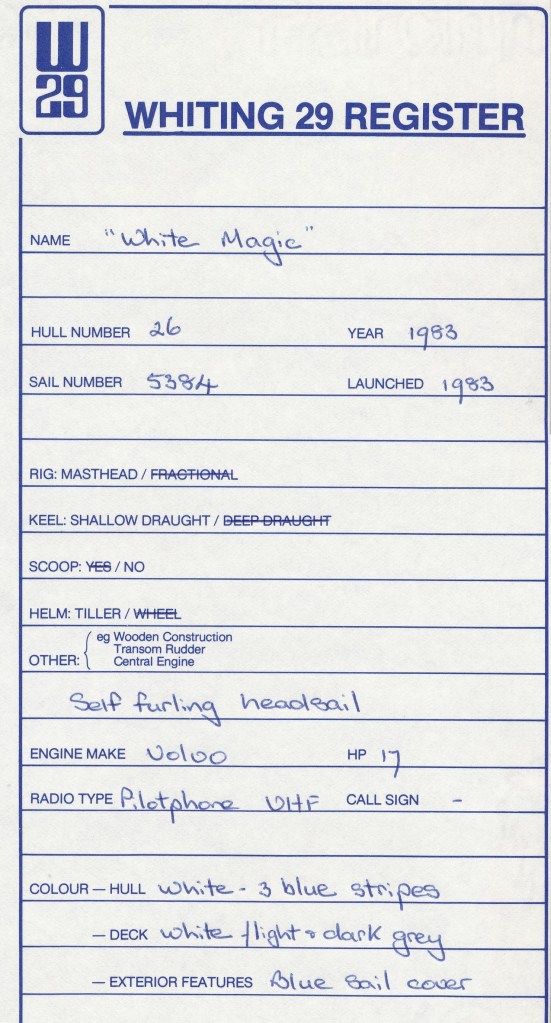 W
29
WHITING 29 REGISTER
NAME "White Magic"
HULL NUMBER 26 YEAR 1983
SAIL NUMBER 5384 LAUNCHED 1983
RIG: MASTHEAD / FRACTIONAL
KEEL: SHALLOW DRAUGHT / DEEP DRAUGHT
SCOOP: YES / NO
HELM: TILLER / WHEEL
OTHER: eg Wooden Construction
Transom Rudder
Central Engine
Self furling headsail
ENGINE MAKE Volvo HP 17
RADIO TYPE Pilotphone VHF CALL SIGN -
COLOUR — HULL White - 3 blue stripes
— DECK White / light & dark grey
— EXTERIOR FEATURES Blue Sail cover